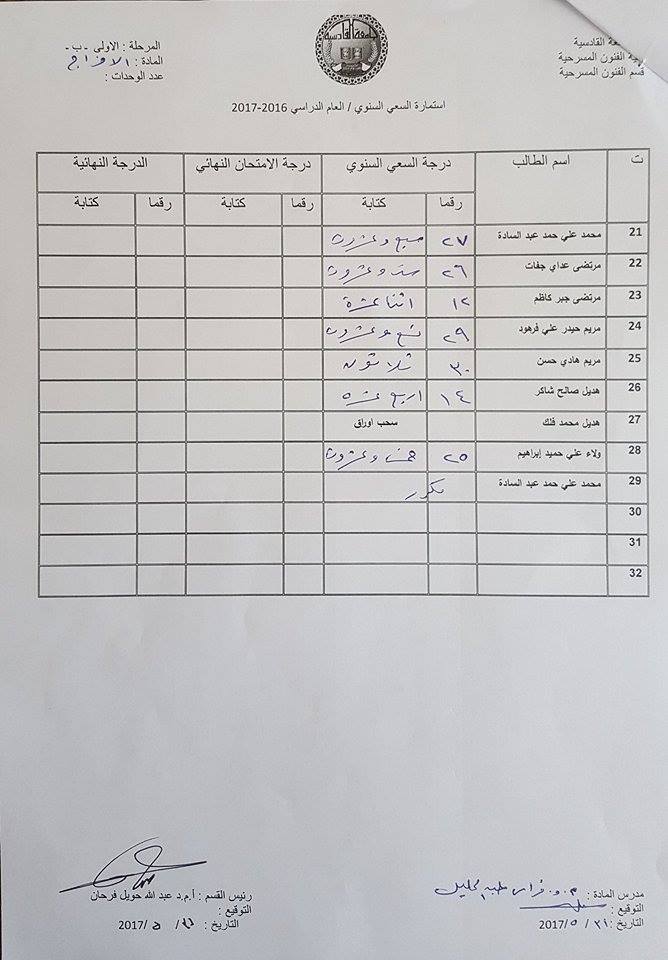 جامعة القادسية
كلية الفنون المسرحية
قسم الفنون المسرحية
جامعة القادسية
المرحلة : الاولى -ب-
المادة : الاخراج
عدد الوحدات :
استمارة السعي السنوي / العام الدراسي 2016-2017
ت اسم الطالب درجة السعي السنوي درجة الامتحان النهائي الدرجة النهائية
رقما كتابة رقما كتابة رقما كتابة
21 محمد علي حمد عبد السادة ٢٧ سبع وعشرون
22 مرتضى عداي جفات ٢٦ ست وعشرون
23 مرتضى جبر كاظم ١٢ اثنا عشرة
24 مريم حيدر علي فرهود ٢٩ تسع وعشرون
25 مريم هادي حسن ٣٠ ثلاثون
26 هديل صالح شاكر ١٤ اربع عشره
27 هديل محمد فلك سحب اوراق
28 ولاء علي حميد إبراهيم ٢٥ خمس وعشرون
29 محمد علي حمد عبد السادة مكرر
30
31
32
مدرس المادة :
التوقيع :
التاريخ : ٢١ / ٥ /2017
رئيس القسم : أ.م.د عبد الله حويل فرحان
التوقيع :
التاريخ : / ٥ /2017